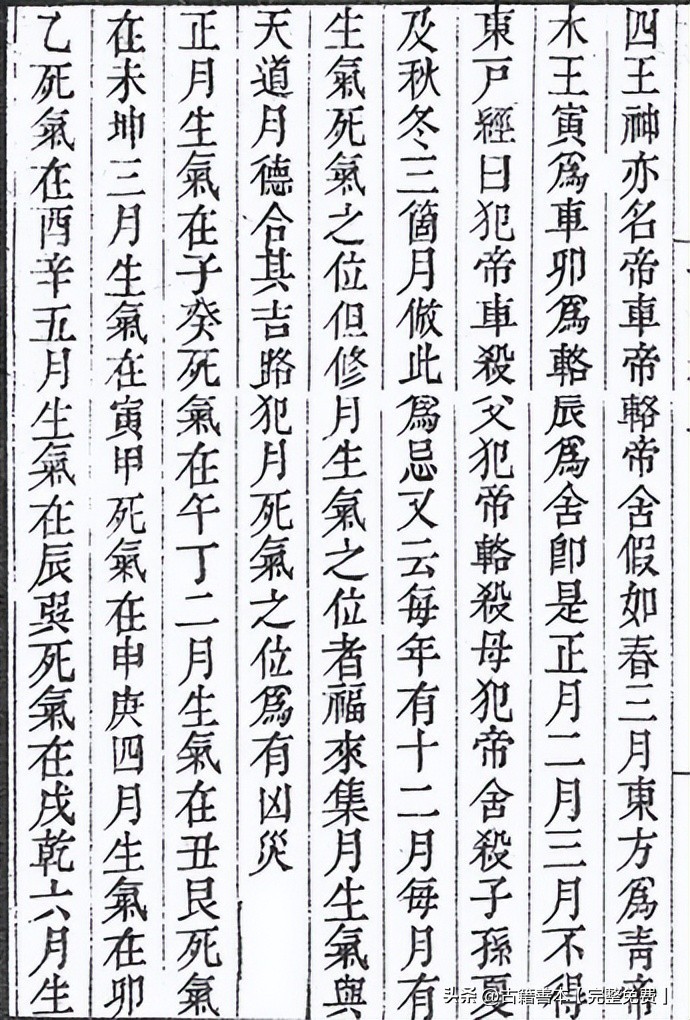 四王神亦名帝車帝輅帝舍假如春三月東方爲青帝
木王寅爲車卯爲輅辰爲舍即是正月二月三月不得
東戸經曰犯帝車殺父犯帝輅殺母犯帝舍殺子孫夏
及秋冬三箇月倣此爲忌又云每年有十二月每月有
生氣死氣之位但修月生氣之位者福來集月生氣與
天道月德合其吉路犯月死氣之位爲有凶災
正月生氣在子癸死氣在午丁二月生氣在丑艮死氣
在未坤三月生氣在寅甲死氣在申庚四月生氣在卯
乙死氣在酉辛五月生氣在辰巽死氣在戌乾六月生
头条 @古籍善本【完整免费】